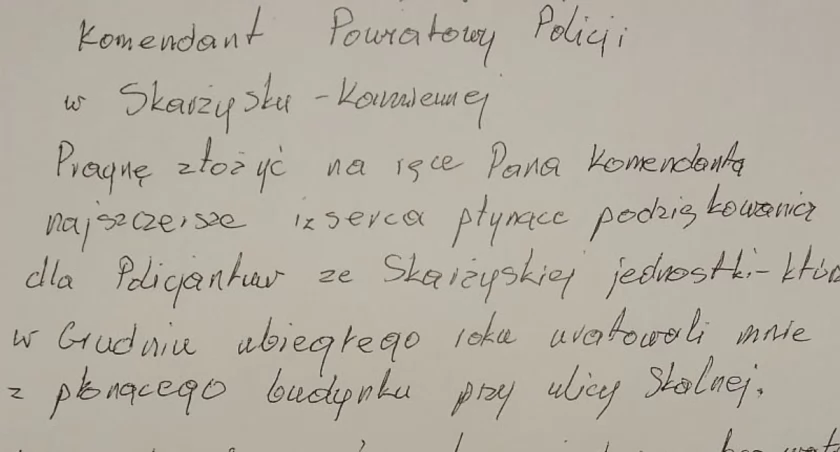 Komendant Powiatowy Policji
w Skarżysku - Kamiennej
Pragnę złożyć na ręce Pana Komendanta
najszczersze i z serca płynące podziękowania
dla Policjantów ze Skarżyskiej jednostki -
w Grudniu ubiegłego roku uratowali mnie
z płonącego budynku przy ulicy Skalnej.